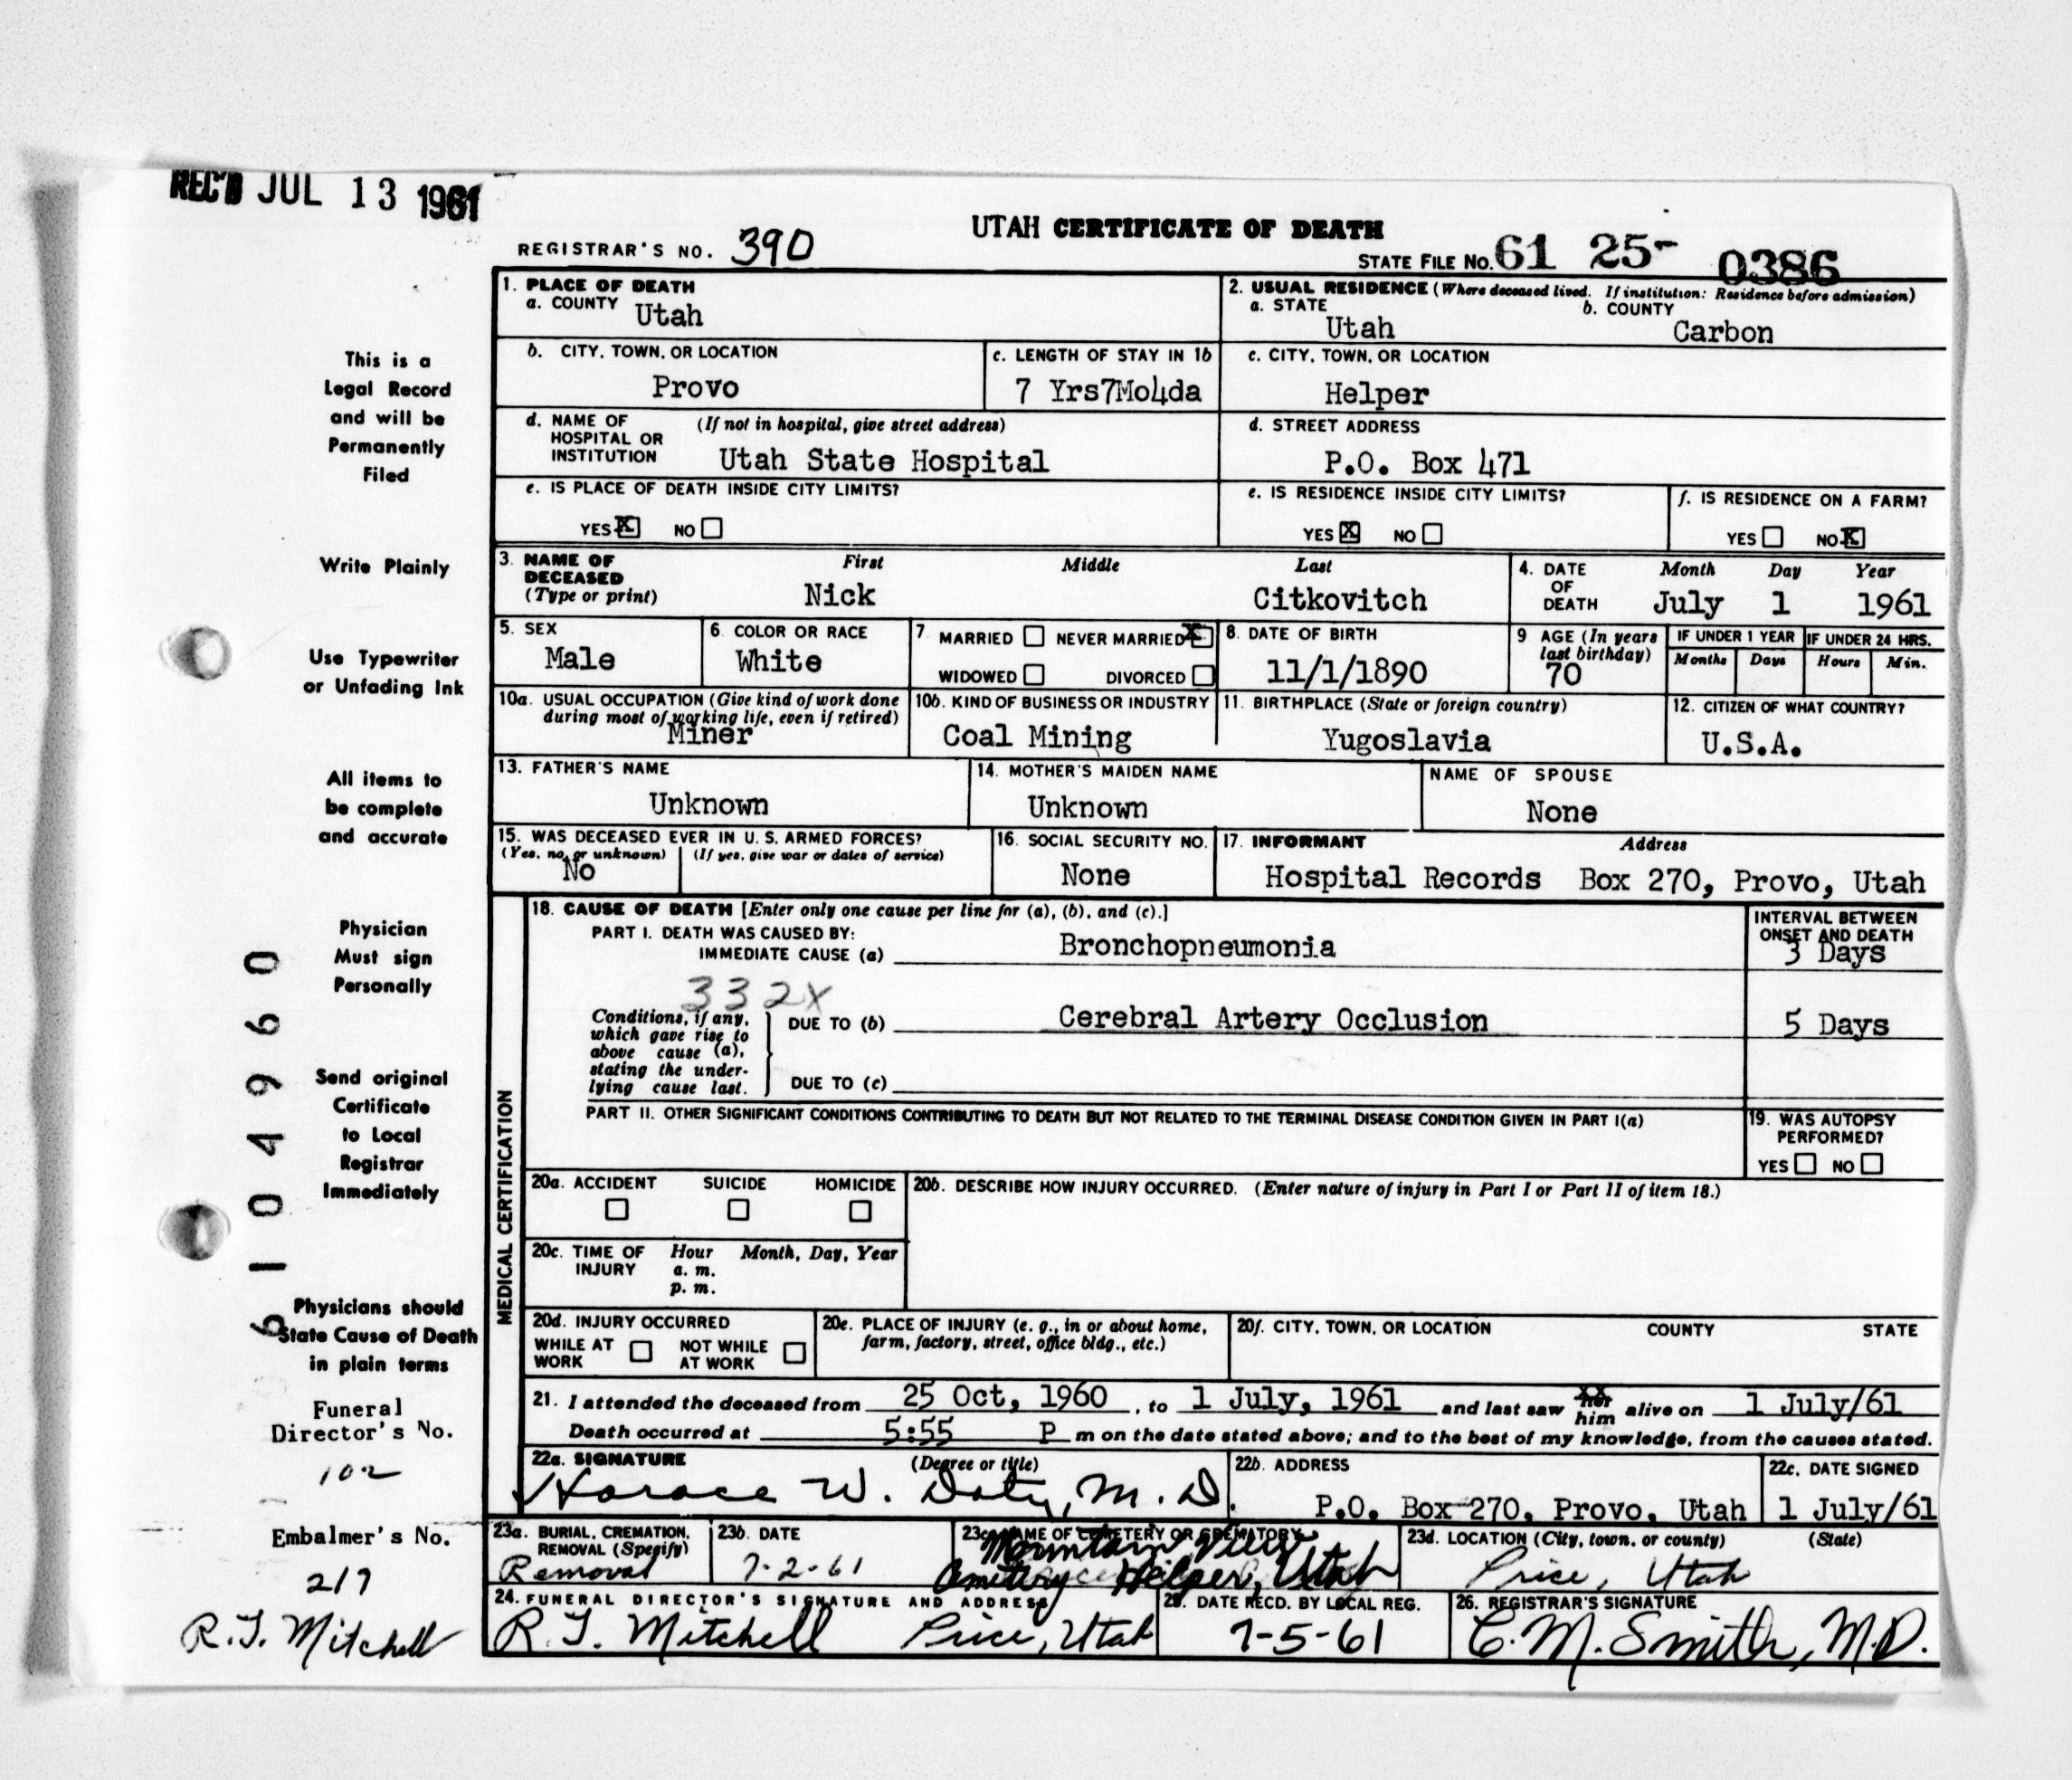 REC'D JUL 13 1961
UTAH CERTIFICATE OF DEATH
REGISTRAR'S NO. 390
STATE FILE NO. 61 25- 0386
1. PLACE OF DEATH
a. COUNTY Utah
2. USUAL RESIDENCE (Where deceased lived. If institution: Residence before admission)
a. STATE Utah b. COUNTY Carbon
b. CITY, TOWN, OR LOCATION Provo
c. LENGTH OF STAY IN 1b 7 Yrs7Mo4da
c. CITY, TOWN, OR LOCATION Helper
d. NAME OF HOSPITAL OR INSTITUTION (If not in hospital, give street address) Utah State Hospital
d. STREET ADDRESS P.O. Box 471
e. IS PLACE OF DEATH INSIDE CITY LIMITS? YES X NO
e. IS RESIDENCE INSIDE CITY LIMITS? YES X NO
f. IS RESIDENCE ON A FARM? YES NO X
3. NAME OF DECEASED (Type or print) First Nick Middle Last Citkovitch
4. DATE OF DEATH Month July Day 1 Year 1961
5. SEX Male
6. COLOR OR RACE White
7 MARRIED NEVER MARRIED X WIDOWED DIVORCED
8. DATE OF BIRTH 11/1/1890
9 AGE (In years last birthday) 70
IF UNDER 1 YEAR Months Days
IF UNDER 24 HRS. Hours Min.
10a. USUAL OCCUPATION (Give kind of work done during most of working life, even if retired) Miner
10b. KIND OF BUSINESS OR INDUSTRY Coal Mining
11. BIRTHPLACE (State or foreign country) Yugoslavia
12. CITIZEN OF WHAT COUNTRY? U.S.A.
13. FATHER'S NAME Unknown
14. MOTHER'S MAIDEN NAME Unknown
NAME OF SPOUSE None
15. WAS DECEASED EVER IN U.S. ARMED FORCES?
(Yes, no, or unknown) No (If yes, give war or dates of service)
16. SOCIAL SECURITY NO. None
17. INFORMANT Address
Hospital Records Box 270, Provo, Utah
MEDICAL CERTIFICATION
18. CAUSE OF DEATH [Enter only one cause per line for (a), (b), and (c).]
INTERVAL BETWEEN ONSET AND DEATH
PART I. DEATH WAS CAUSED BY:
IMMEDIATE CAUSE (a) Bronchopneumonia 3 Days
332X
Conditions, if any, which gave rise to above cause (a), stating the underlying cause last.
DUE TO (b) Cerebral Artery Occlusion 5 Days
DUE TO (c)
PART II. OTHER SIGNIFICANT CONDITIONS CONTRIBUTING TO DEATH BUT NOT RELATED TO THE TERMINAL DISEASE CONDITION GIVEN IN PART I(a)
19. WAS AUTOPSY PERFORMED? YES NO
20a. ACCIDENT SUICIDE HOMICIDE
20b. DESCRIBE HOW INJURY OCCURRED. (Enter nature of injury in Part I or Part II of item 18.)
20c. TIME OF INJURY Hour a. m. p. m. Month, Day, Year
20d. INJURY OCCURRED WHILE AT WORK NOT WHILE AT WORK
20e. PLACE OF INJURY (e. g., in or about home, farm, factory, street, office bldg., etc.)
20f. CITY, TOWN, OR LOCATION COUNTY STATE
21. I attended the deceased from 25 Oct, 1960, to 1 July, 1961 and last saw her him alive on 1 July/61
Death occurred at 5:55 P m on the date stated above; and to the best of my knowledge, from the causes stated.
22a. SIGNATURE (Degree or title) Horace W. Doty, M.D.
22b. ADDRESS P.O. Box 270, Provo, Utah
22c. DATE SIGNED 1 July/61
23a. BURIAL, CREMATION, REMOVAL (Specify) Removal
23b. DATE 7-2-61
23c. NAME OF CEMETERY OR CREMATORY Mountain View Cemetery Helper, Utah
23d. LOCATION (City, town, or county) (State) Price, Utah
24. FUNERAL DIRECTOR'S SIGNATURE AND ADDRESS R.T. Mitchell Price, Utah
25. DATE RECD. BY LOCAL REG. 7-5-61
26. REGISTRAR'S SIGNATURE C.M. Smith, M.D.
This is a
Legal Record
and will be
Permanently
Filed
Write Plainly
Use Typewriter
or Unfading Ink
All items to
be complete
and accurate
Physician
Must sign
Personally
Send original
Certificate
to Local
Registrar
Immediately
Physicians should
State Cause of Death
in plain terms
Funeral
Director's No.
102
Embalmer's No.
217
R.T. Mitchell
61 04960